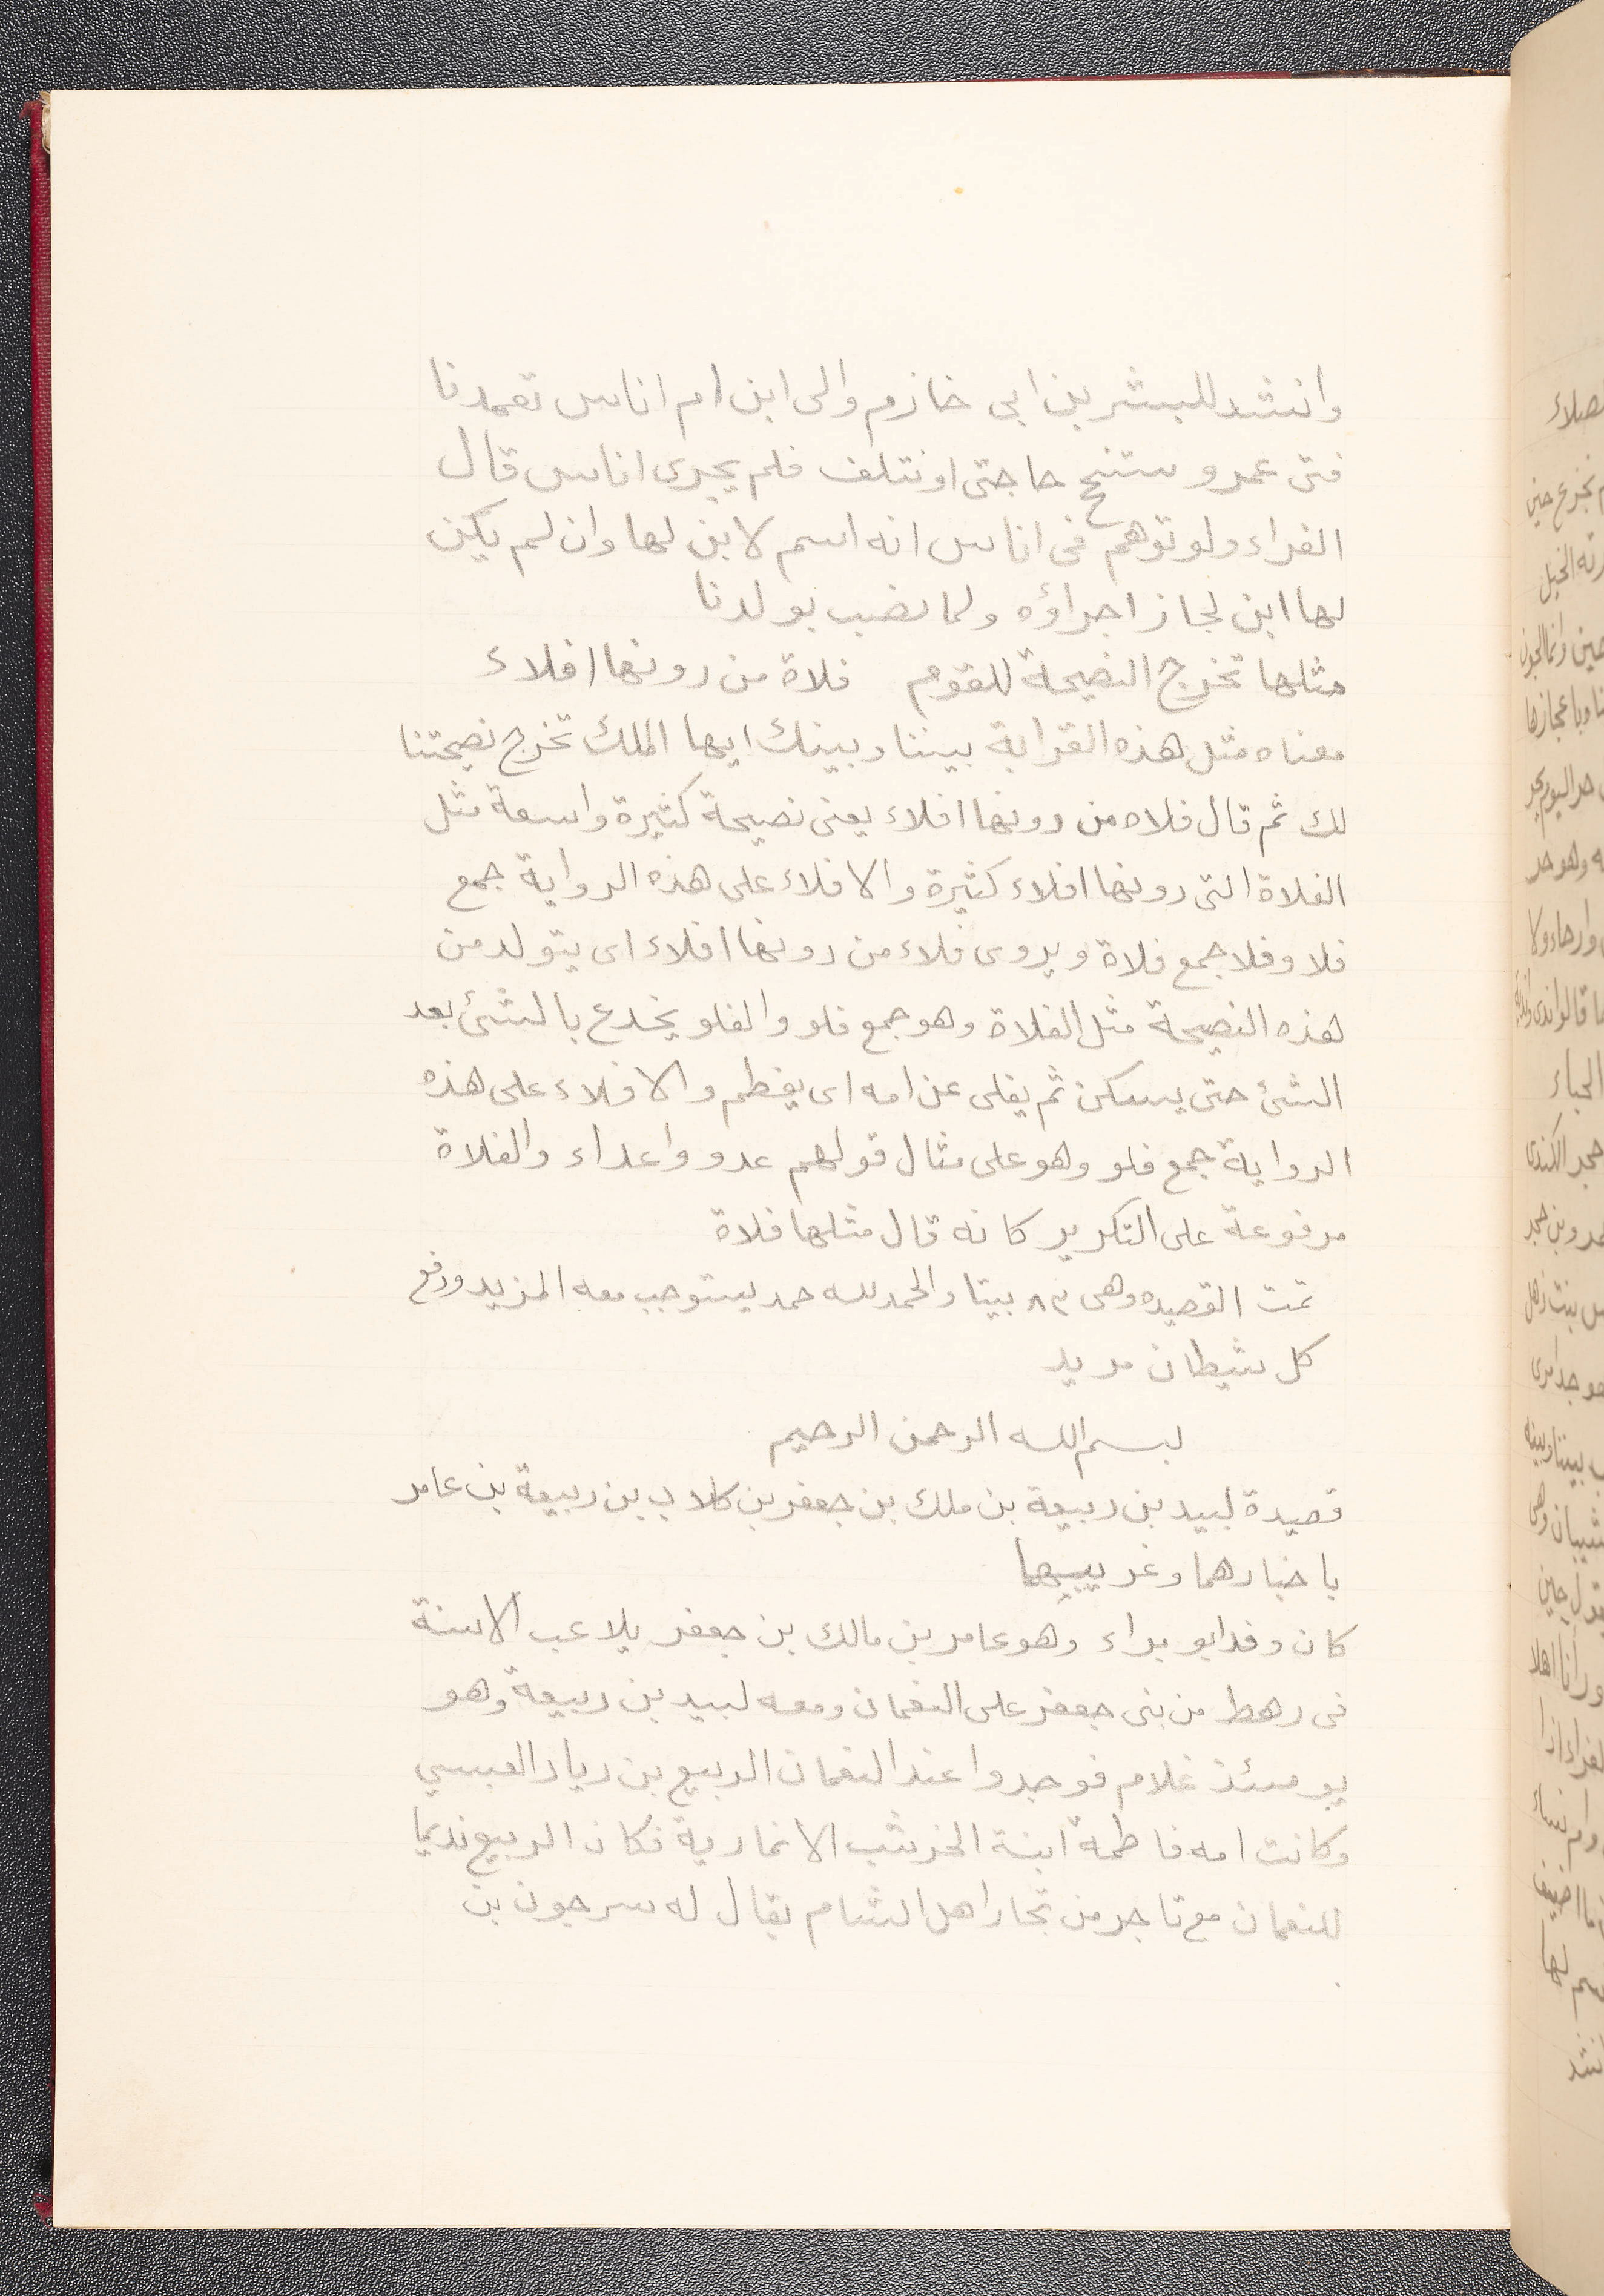 وانشد للبشر بن ابى خازم والى ابن ام اناس تعمدنا
فتى عمرو ستنجح حاجتى او نتلف فلم يجرى اناس قال
الفراء ولو توهم فى اناس انه اسم لابن لها وان لم يكن
لها ابن لجاز اجراؤه ولما نصب بو لدنا
مثلها تخرج النصيحة للقوم فلاة من دونها افلاء
معناه مثل هذه القرابة بيننا وبينك ايها الملك تخرج نصيحتنا
لك ثم قال فلاه من دونها افلاء يعنى نصيحة كثيرة واسعة مثل
الفلاة التى دونها افلاء كثيرة والافلاء على هذه الرواية جمع
فلا وفلا جمع فلاة ويروى فلاء من دونها افلاء اى يتولد من
هذه النصيحة مثل الفلاة وهو جمع فلو والفلو يخدع بالشئ بعد
الشئ حتى يسكن ثم يفلى عن امه اى يفطم والافلاء على هذه
الرواية جمع فلو وهو على مثال قولهم عدو واعداء والفلاة
مرفوعة على التكرير كانه قال مثلها فلاة
تمت القصيده وهى ٨٣ بيتا والحمد لله حمد يستوجب معه المزيد ودفع
كل شيطان مريد
بسم الله الرحمن الرحيم
قصيدة لبيد بن ربيعة بن ملك بن جعفر بن كلاب بن ربيعة بن عامر
باخبارهما وغريبهما
كان وفد ابو براء وهو عامر بن مالك بن جعفر يلاعب الاسنة
فى رهط من بنى جعفر على النعمان ومعه لبيد بن ربيعة وهو
يومئذ غلام فوجدوا عند النعمان الربيع بن رياد العبسي
وكانت امه فاطمة ابنة الخرشب الانمارية فكان الربيع نديما
للنعمان مع تاجر من تجار اهل الشام يقال له سرجون بن